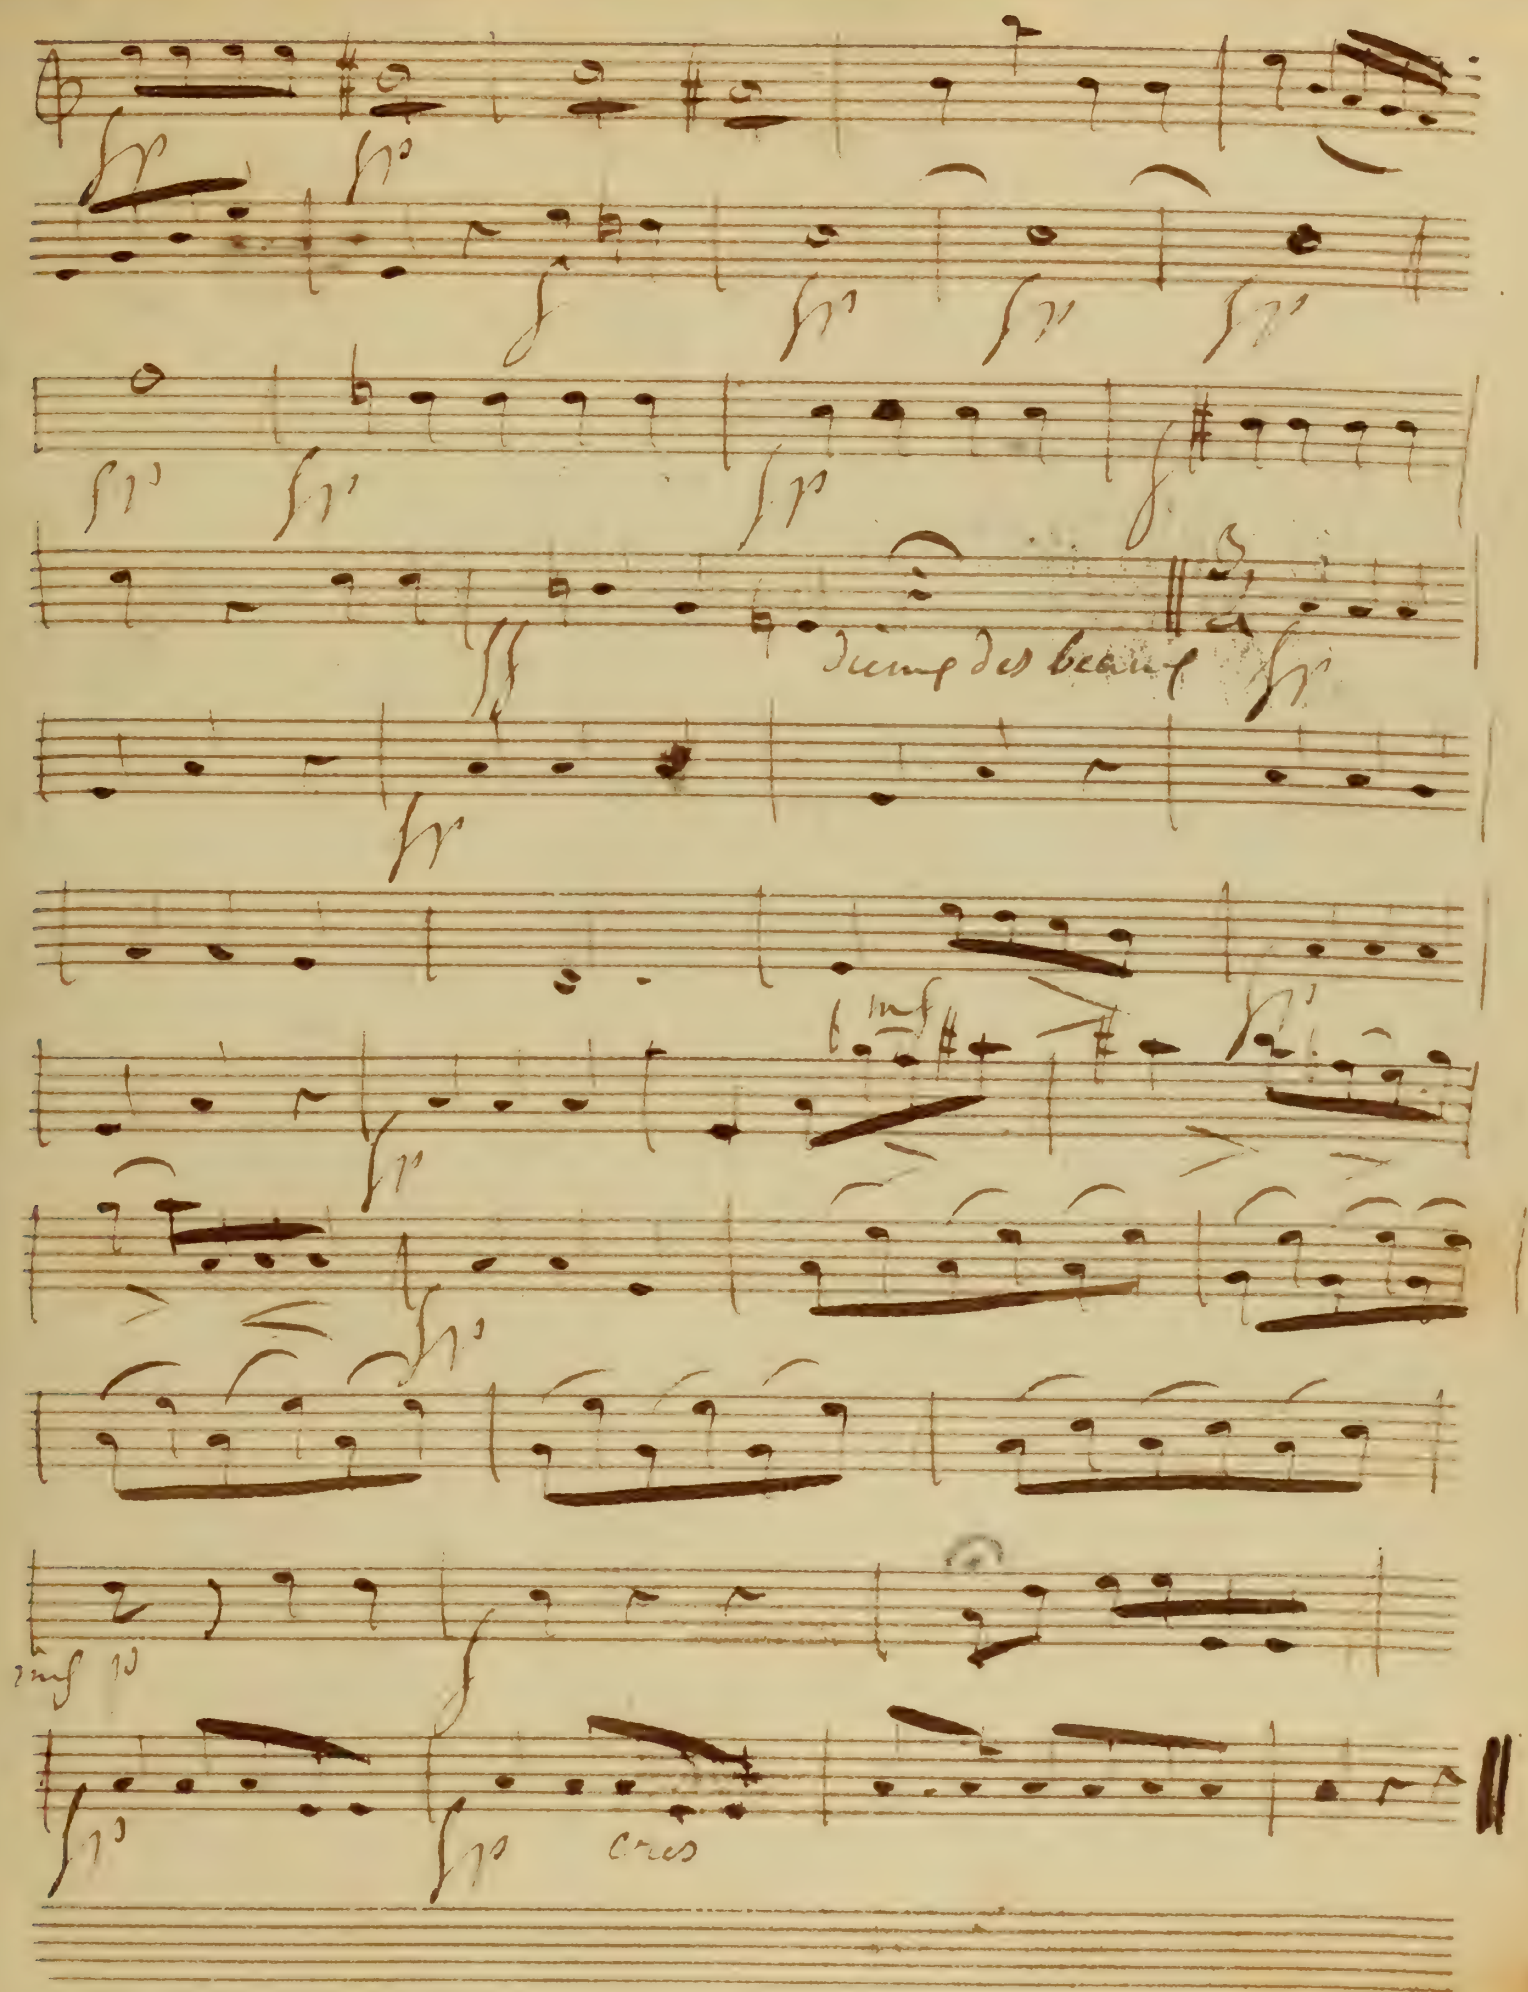 fp fp
f fp fp fp
fp fp fp f
ff dieux des beaux 3 fp
fp
mf fp
fp
fp
mf p f
fp fp cres